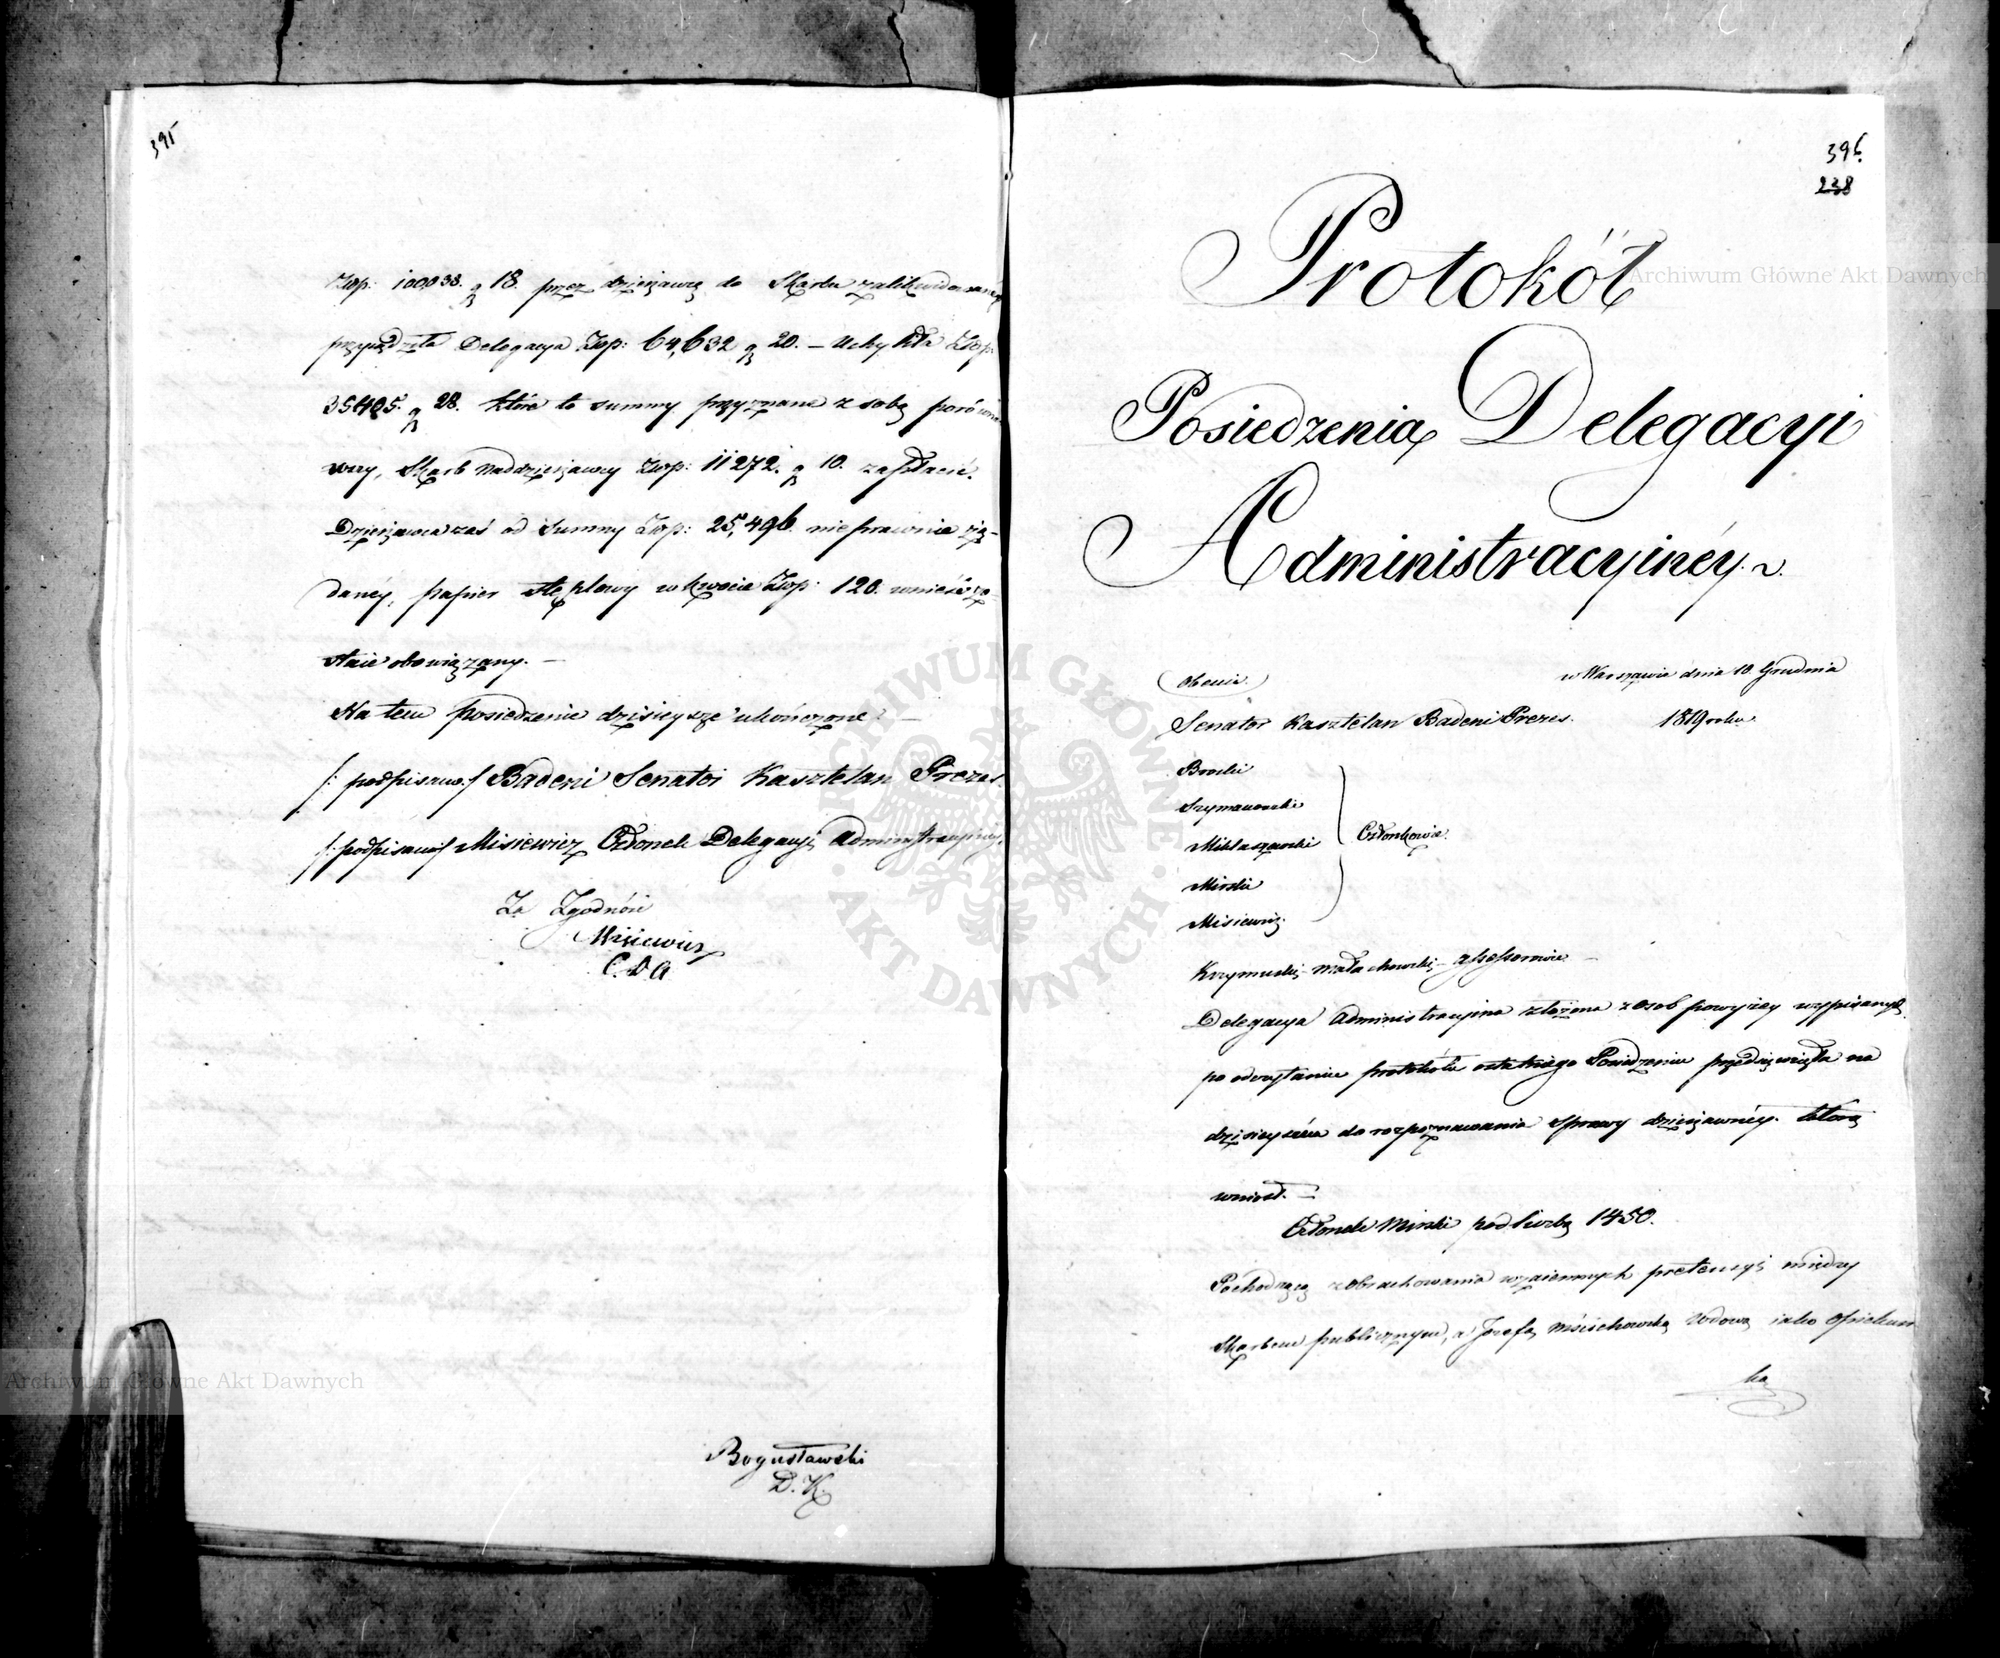 395
Złp: 100,038. g 18. przez dzierżawcę do Skarbu zalikwidowaney
przysądziła Delegacya Złp: 64,632 g 20. – Uchyliła Złp:
35405. g 28. które to summy przyznane z sobą porówna
wszy, Skarb naddzierżawcy Złp: 11272. g 10. zapłacić.
Dzierżawca zaś od Summy Złp: 25,496. nieprawnie żą-
daney, papier stęplowy w kwocie Złp: 120. wnieść zo-
staie obowiązany. —
Na tem posiedzenie dzisieysze ukończone. —
/: podpisano :/ Badeni Senator Kasztelan Prezes.
/: podpisano :/ Misiewicz Członek Delegacyi Administracyiney.
Za Zgodność
Misiewicz
C. D A
Bogusławski
D. K.
396.
238
Protokół
Posiedzenia Delegacyi
Administracyinéy.
w Warszawie dnia 10. Grudnia
1819 roku.
Obecni.
Senator Kasztelan Badeni Prezes.
Broski
Szymanowski
Miklaszewski
Członkowie.
Mirski
Misiewicz.
Krzymuski – Małachowski – Assessorowie –
Delegacya Administracyina złożona z osob powyżey wypisanych
po odczytaniu protokółu ostatniego Posiedzenia przedsięwzięła na
dzisieyszem do rozpoznawania sprawy dzierżawnéy. którą
wniosł. —
Członek Mirski pod liczbą 1450.
Pochodzącą z obrachowania wzaiemnych pretensyi między
Skarbem publicznym, a Jozefą Mścichowską Wdową iako Opiekun
ką
Archiwum Główne Akt Dawnych
ARCHIWUM GŁÓWNE · AKT DAWNYCH ·
Archiwum Główne Akt Dawnych